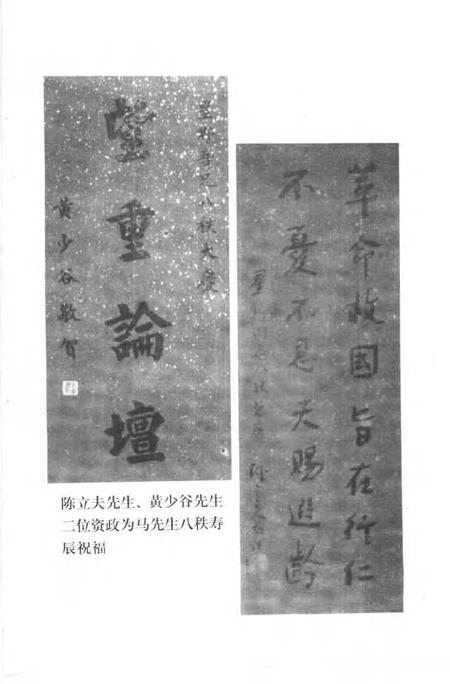 星野吾兄八秩大慶
望重論壇
黄少谷敬賀
革命救國旨在行仁
不憂不息天賜遐齡
陈立夫先生、黄少谷先生
二位资政为马先生八秩寿
辰祝福